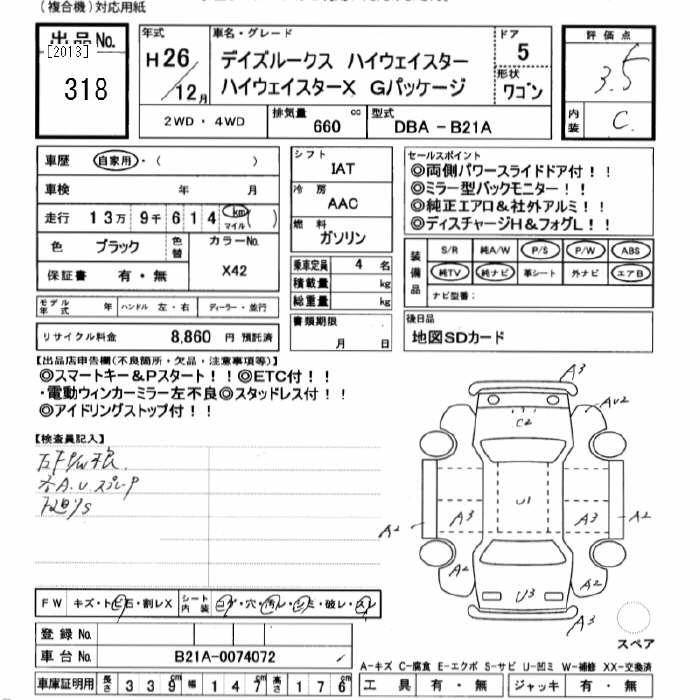 （複合機）対応用紙
出品No.
[2013]
318
年式
H26/12月
車名・グレード
デイズルークス ハイウェイスター
ハイウェイスターX Gパッケージ
ドア
5
形状
ワゴン
評価点
3.5
内装
C
2WD・4WD
排気量
660 cc
型式
DBA－B21A
車歴 自家用・（ ）
車検 年 月
走行 13万 9千 614 km マイル ( )
色 ブラック
色替
カラーNo.
X42
保証書 有・無
シフト
IAT
冷房
AAC
燃料
ガソリン
乗車定員 4 名
積載量 kg
総重量 kg
書類期限
月 日
セールスポイント
◎両側パワースライドドア付！！
◎ミラー型バックモニター！！
◎純正エアロ＆社外アルミ！！
◎ディスチャージH＆フォグL！！
装備品
S/R 純A/W P/S P/W ABS
純TV 純ナビ 革シート 外ナビ エアB
ナビ型番：
モデル年式 年 ハンドル 左・右 ディーラー・並行
リサイクル料金 8,860 円 預託済
後日品
地図SDカード
【出品店申告欄(不良箇所・欠品・注意事項等)】
◎スマートキー＆Pスタート！！◎ETC付！！
・電動ウィンカーミラー左不良◎スタッドレス付！！
◎アイドリングストップ付！！
【検査員記入】
A3
AU2
C2
A2
A3
U1
A3
A2
A2
U3
A2
A3
スペア
FW キズ・トビ石・割レX
シート内装 コゲ・穴・汚レ・シミ・破レ・スレ
登録No.
車台No. B21A-0074072
A－キズ C－腐食 E－エクボ S－サビ U－凹ミ W－補修 XX－交換済
車庫証明用 長さ 339cm 幅 147cm 高さ 176cm
工具 有・無 ジャッキ 有・無